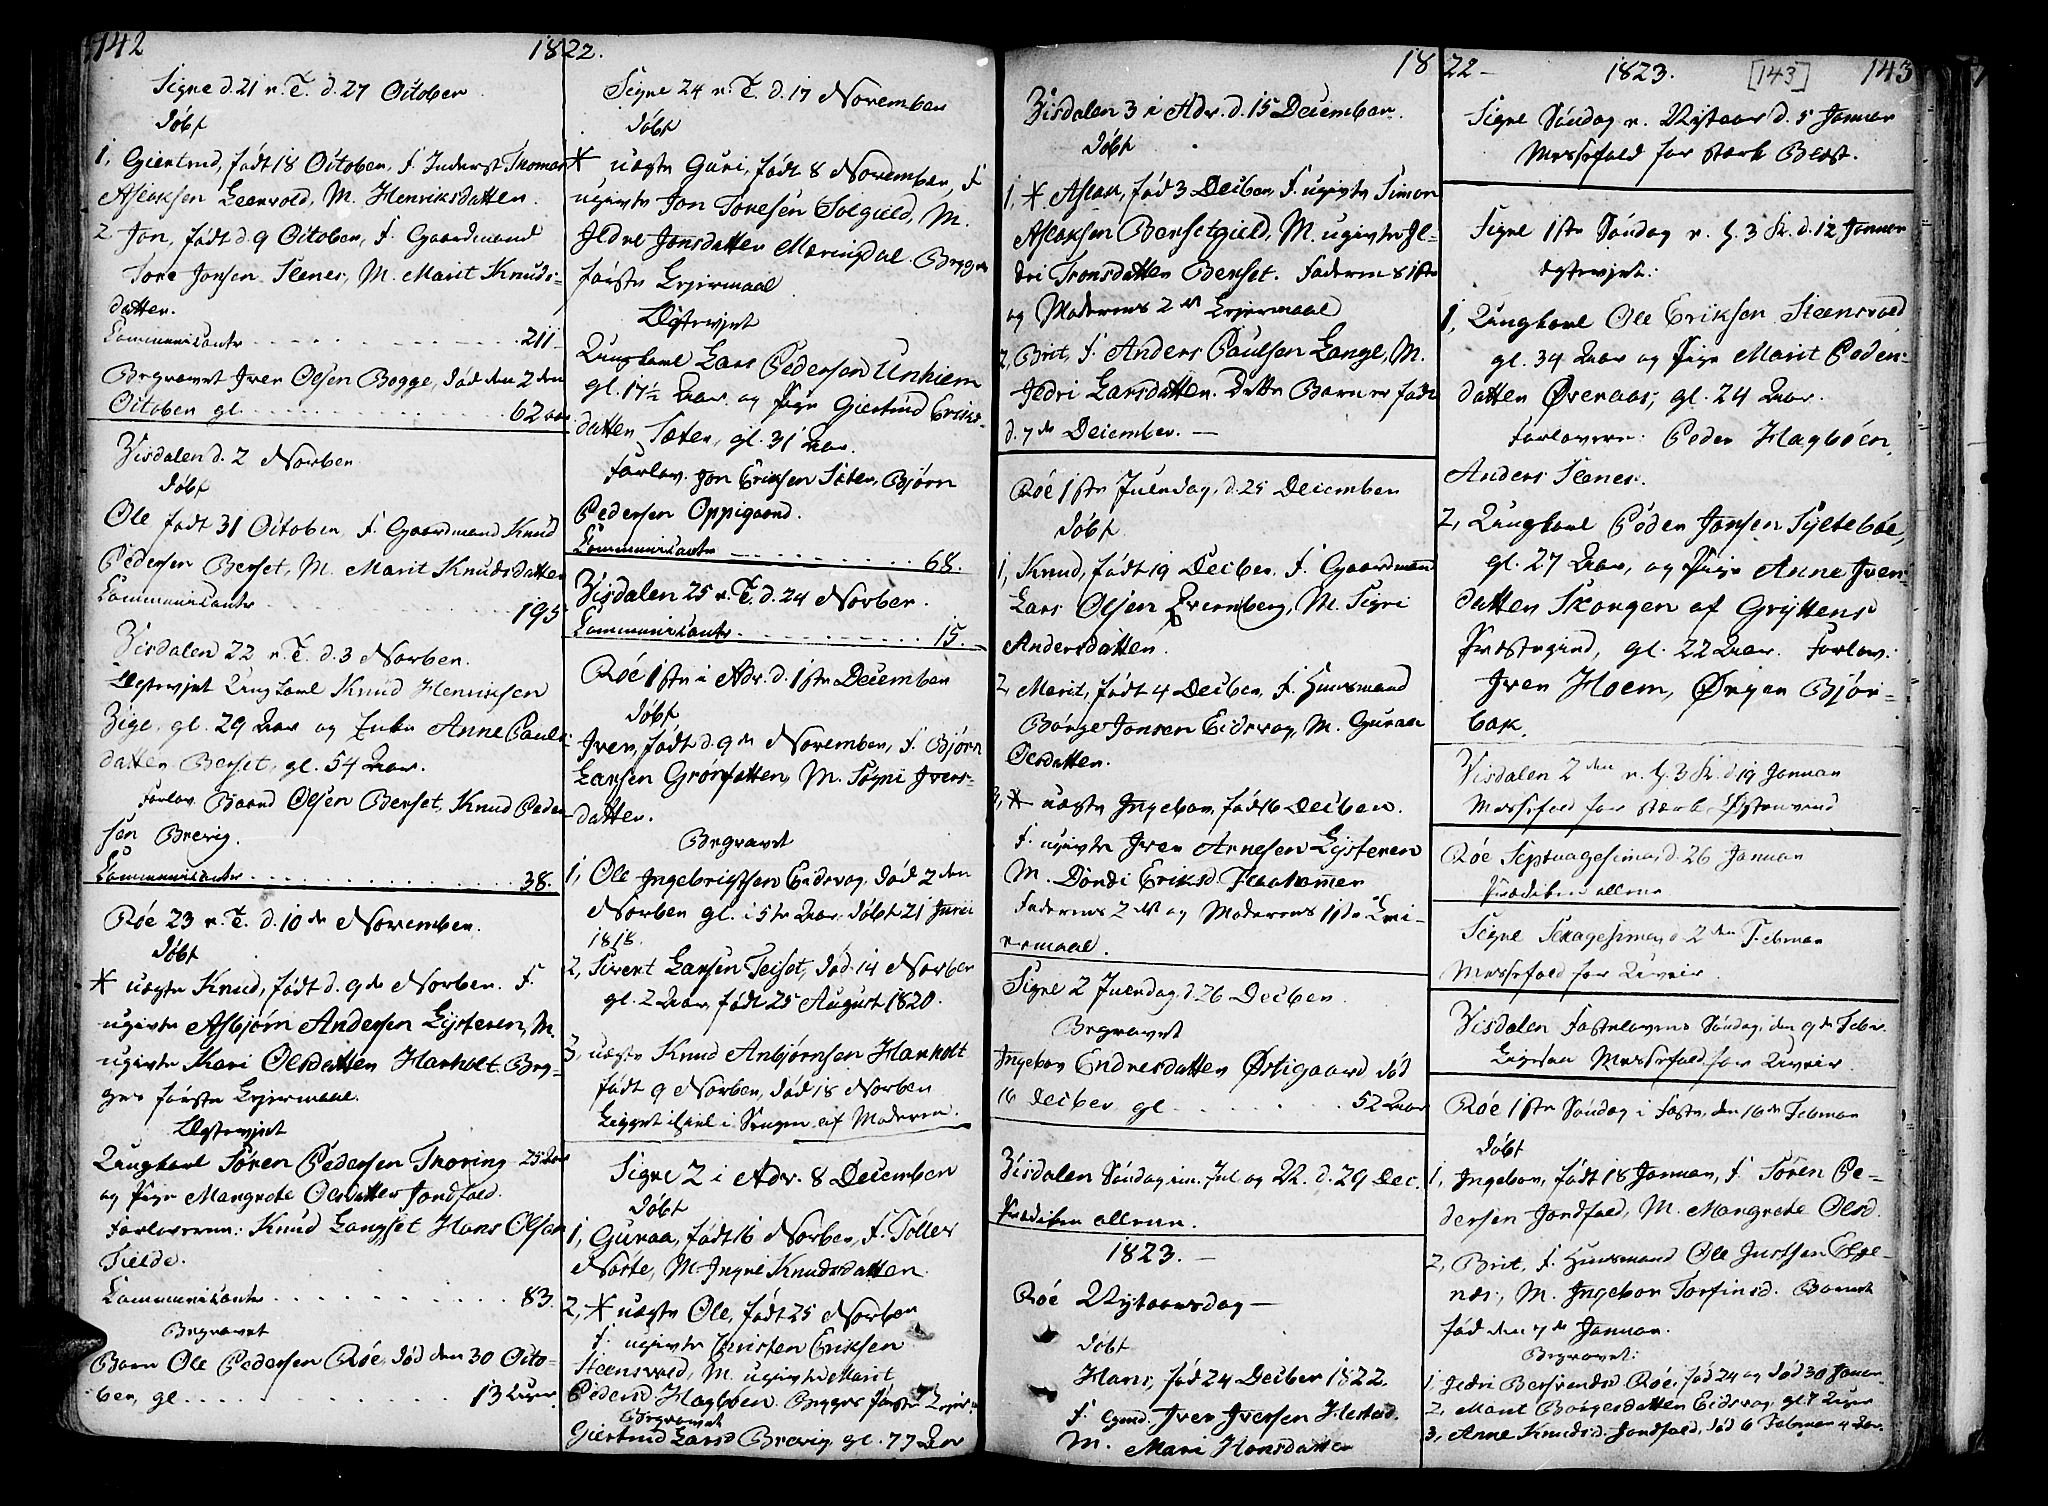 142
1822.
Signe d. 21 n. T. d. 27 October
døbt
1, Giertrud, født 18 October, F. Inderst Thomas
Aslaksen Leervold, M. Henriksdatter.
2, Jon, født d. 9 October, F. Gaardmand
Tore Jonsen Stenes, M. Marit Knuds-
datter.
Communicanter 211
Begravet Iver Olsen Bogge, død den 2den
October gl. 62 aar
Visdalen d. 2 Norben
døbt
Ole født 31 October F. Gaardmand Knud
Pedersen Berset, M. Marit Knudsdatter
Communicanter 195
Visdalen 22 n. T. d. 3 Norben.
Egteviet Ungkarl Knud Henriksen
Vige, gl. 29 Aar og Enke Anne Pauls-
datter Berset, gl. 54 Aar.
Forlov. Baard Olsen Berset, Knud Peder
sen Brevig.
Communicanter 38.
Røe 23 n. T. d. 10de November.
døbt
* uægte Knud, født d. 9de Norben. F.
ugivte Asbjørn Andersen Lysteren, M.
ugivte Kari Olsdatter Hanholt. Beg-
ges første Lejermaal.
Egteviet
Ungkarl Søren Pedersen Thoring 25 Aar
og Pige Margrete Olsdatter Jordfald.
Forloverne: Knud Langset Hans Olsen
Tielde.
Communicanter 83.
Begravet
Barn Ole Pedersen Røe, død den 30 Octo-
ber, gl. 13 Uger.
Signe 24 n. T. d. 17 November
døbt
* uægte Guri, født 8 November, F
ugivte Jon Toresen Solgield, M.
Ildre Jonsdatter Meringdal Begges
første Lejermaal
Egteviet
Ungkarl Lars Pedersen Unhiem
gl. 17½ Aar og Pige Giertrud Eriks-
datter Sæter, gl. 31 Aar.
Forlov. Jon Eriksen Sæter, Bjørn
Pedersen Oppigaard.
Communicanter 68.
Visdalen 25 n. T. d. 24 Norben.
Communicanter 15.
Røe 1ste i Adv. d. 1ste December
døbt
Iver, født d. 9de November, F. Bjørn
Larsen Grønsætter, M. Signi Ivers-
datter.
Begravet
1, Ole Ingebrigtsen Eidsvog, død 2den
Norben gl. i 5te Aar, døbt 21 Junii
1818.
2, Sivert Larsen Teiset, død 14 Norben
gl. 2 Aar, født 25 August 1820.
3, uægte Knud Anbjørnsen Hanholt
født 9 Norben, død 18 Norben
Ligget ihiel i Sengen af Moderen.
Signe 2 i Adv. 8 December
døbt
1, Guraa, født 16 Norben, F. Tollev
Nøste, M. Ingri Knudsdatter.
2, * uægte Ole, født 25 Norben
F. ugivte Christen Eriksen
Steensvold, M. ugivte Marit
Pedersd. Hagbøen. Begges første Lejer.
Begravet
Giertrud Larsd Brevig, gl. 77 Aar
18 22 –
1823.
[143]
143
Visdalen 3 i Adv. d. 15 December.
døbt
1, * Aslak, fød 3 Decben, F. ugivte Simon
Aslaksen Bersetgield, M. ugivte Il-
dri Tronsdatter Berset. Faderens 1ste
og Moderens 2det Lejermaal
2, Brit, F. Anders Paulsen Lange, M.
Ildri Larsdatter. Dette Barn er født
d. 7de December. –
Røe 1ste Juledag, d. 25 December
døbt
1, Knud, født 19 Decben, F. Gaardmand
Lars Olsen Qvernberg, M. Sigri
Andersdatter.
2, Marit, født 4 Decben, F. Huusmand
Børge Jonsen Eidsvog, M. Guraa
Olsdatter.
3, * uægte Ingebor, født 6 Decben.
F. ugivte Iver Arnesen Lysteren
M. Dordi Eriksd. Flaahammer
Faderens 2det og Moderens 1ste Lei-
ermaal.
Signe 2 Juledag, d. 26 Decben.
Begravet
Ingebor Endresdatter Østigaard død
16 Decben gl. 52 Aar
Visdalen Søndag im. Jul og N. d. 29 Dec.
Prædiken allene.
1823. –
Røe Nytaarsdag –
døbt
Hans, fød 24 Decber 1822.
F. Gmd. Iver Iversen Hestad.
M. Mari Hansdatter
Signe Søndag n. Nytaar d. 5 Januar
Messefald for stærk Blæst.
Signe 1ste Søndag n. H. 3 K. d. 12 Januar
Egteviet:
1, Ungkarl Ole Eriksen Steensvold,
gl. 34 Aar og Pige Marit Peders-
datter Øveraas, gl. 24 Aar.
Forlovere: Peder Hagbøen,
Anders Stenes.
2, Ungkarl Peder Jonsen Syltebøe,
gl. 27 Aar, og Pige Anne Ivers-
datter Skorgen af Gryttens
Præstegield, gl. 22 Aar. Forlov:
Iver Hoem, Ørjan Bjør-
bak.
Visdalen 2den n. H. 3 K. d. 19 Januar
Messefald for stærk Østenvind
Røe Septuagesima, d. 26 Januar
Prædiken allene
Signe Sexagesima, d. 2den Februar
Messefald for Uveir.
Visdalen Fastelavens Søndag, den 9de Febr.
Ligesaa Messefald for Uveir.
Røe 1ste Søndag i Faste, den 16de Februar
døbt
1, Ingebor, født 18 Januar, F. Søren Pe-
dersen Jordfald, M. Margrete Olsd.
2, Brit, F. Huusmand Ole Justsen Elge-
næs, M. Ingebor Torfinsd. Barnet
fød den 7de Januar.
Begravet:
1, Ildri Bersvendsd. Røe, fød 24 og død 30 Januar.
2, Marit Børgesdatter Eidsvog, gl. 7 Uger
3, Anne Knudsd. Jordfald, død 6 Februar 4 Aar.